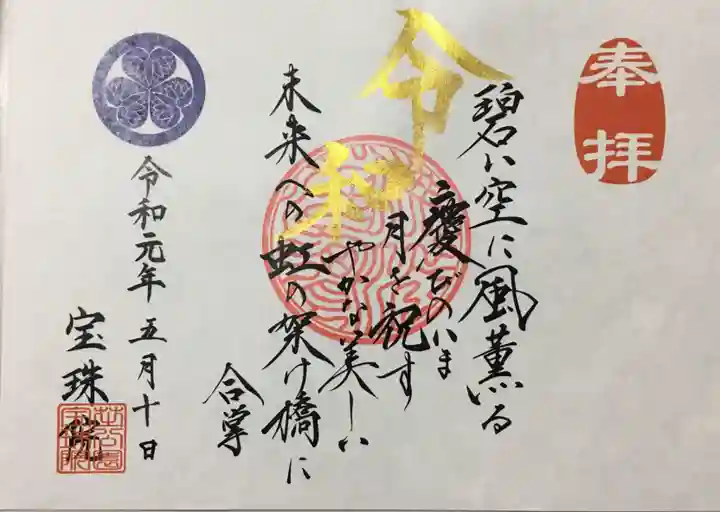 奉拝
令和
碧い空に風薫る
慶びのいま
月を祝す
やがない美しい
未来への虹の架け橋に
合掌
令和元年 五月十日
宝珠院